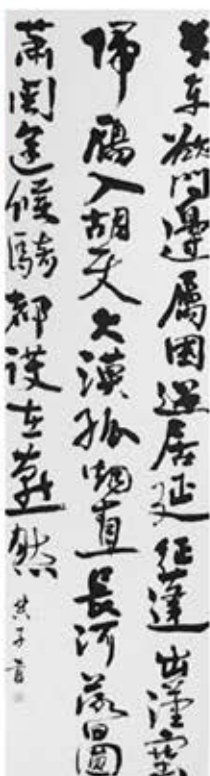 單車欲問邊屬國過居延征蓬出漢塞
歸鴈入胡天大漠孤烟直長河落日圓
蕭関逢候騎都護在燕然